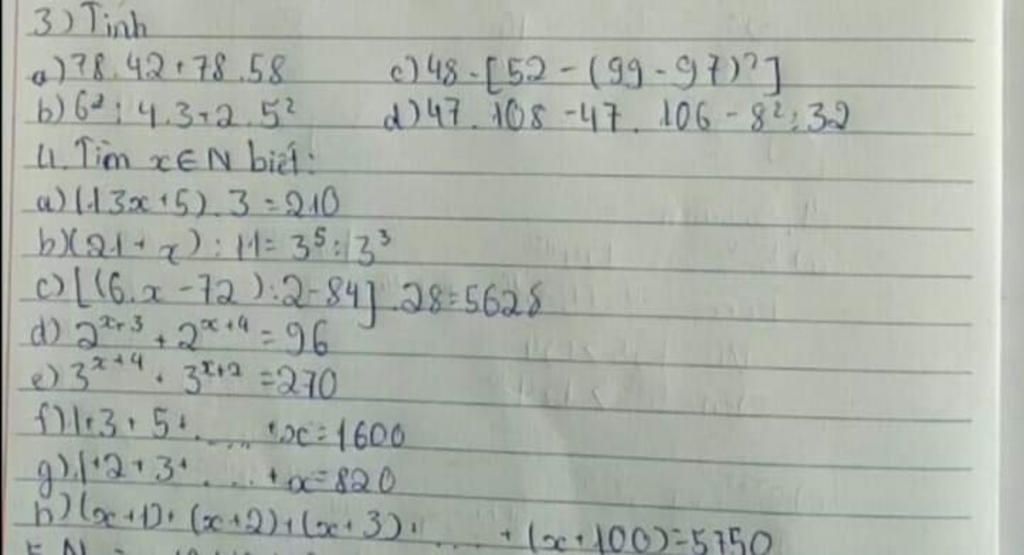 3) Tính
a) 78.42+78.58 c) 48-[52-(99-97)²]
b) 6²:4.3+2.5² d) 47.108-47.106-8²:32
4. Tìm x∈N biết:
a) (13x+5).3=210
b) (21+x):11=3⁵:3³
c) [(6.x-72):2-84].28=5628
d) 2ˣ⁺³+2ˣ⁺⁴=96
e) 3ˣ⁺⁴+3ˣ⁺²=270
f) 1+3+5+.....+x=1600
g) 1+2+3+.....+x=820
h) (x+1)+(x+2)+(x+3)+.....+(x+100)=5750